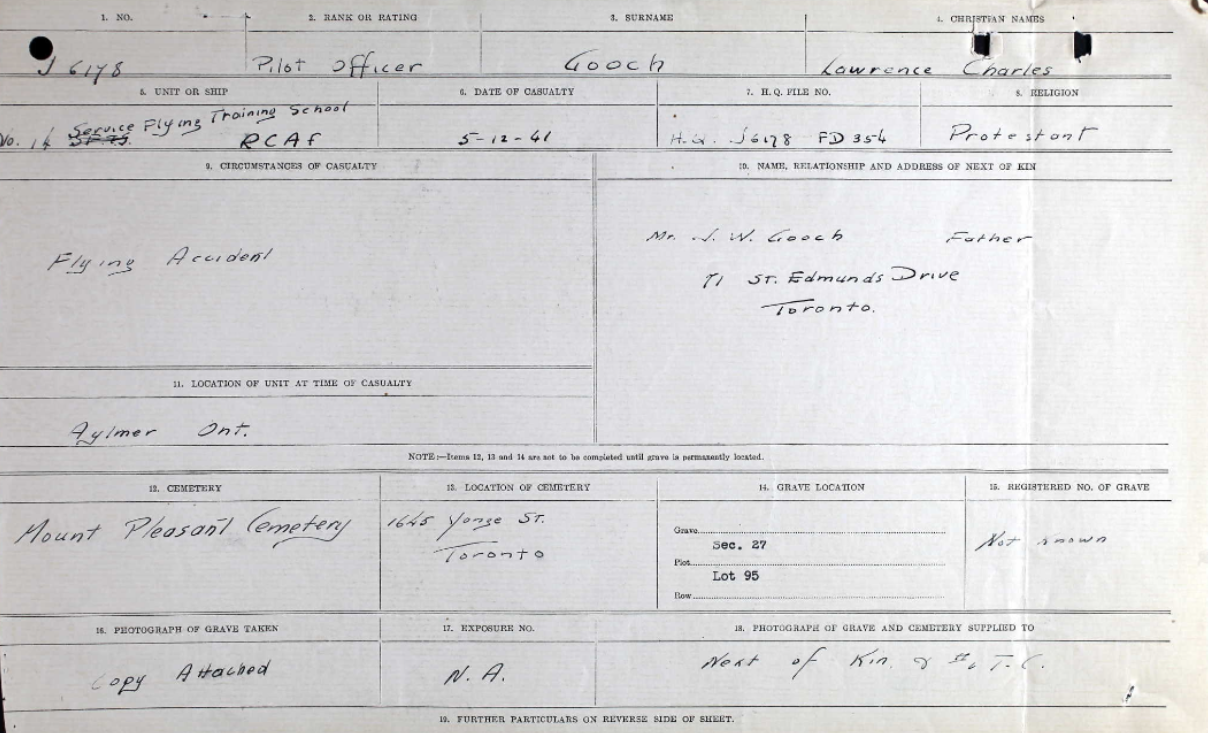 1. NO. 2. RANK OR RATING 3. SURNAME 4. CHRISTIAN NAMES
J 6178 Pilot Officer Gooch Lawrence Charles
5. UNIT OR SHIP 6. DATE OF CASUALTY 7. H. Q. FILE NO. 8. RELIGION
No. 14 Service Flying Training School
RCAF 5-12-41 H.Q. J6178 FD 354 Protestant
9. CIRCUMSTANCES OF CASUALTY 10. NAME, RELATIONSHIP AND ADDRESS OF NEXT OF KIN
Mr. J. W. Gooch Father
Flying Accident
71 St. Edmunds Drive
Toronto.
11. LOCATION OF UNIT AT TIME OF CASUALTY
Aylmer Ont.
NOTE:—Items 12, 13 and 14 are not to be completed until grave is permanently located.
12. CEMETERY 13. LOCATION OF CEMETERY 14. GRAVE LOCATION 15. REGISTERED NO. OF GRAVE
Mount Pleasant Cemetery 1645 Yonge St.
Toronto
Grave
Sec. 27
Plot
Lot 95
Row
Not known
16. PHOTOGRAPH OF GRAVE TAKEN 17. EXPOSURE NO. 18. PHOTOGRAPH OF GRAVE AND CEMETERY SUPPLIED TO
Copy Attached N. A. Next of Kin
19. FURTHER PARTICULARS ON REVERSE SIDE OF SHEET.